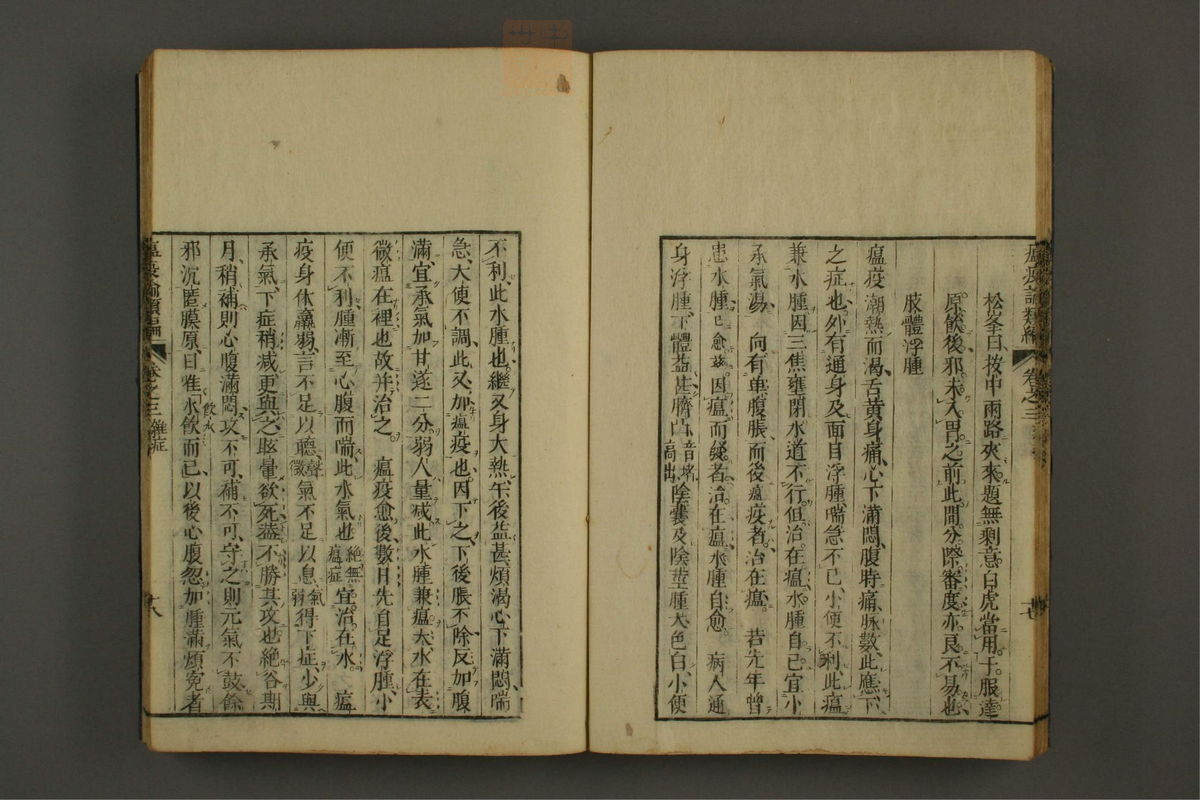 瘟疫論類編 卷之三
松峯曰按中兩路夾來題無剩意白虎當用于服達
原飲後邪未入胃之前此間分際審度亦良不易也
肢體浮腫
瘟疫潮熱而渴舌黃身痛心下滿悶腹時痛脉數此應下
之症也外有通身及面目浮腫喘急不已小便不利此瘟
兼水腫因三焦壅閉水道不行但治在瘟水腫自已宜小
承氣湯 向有單腹脹而後瘟疫者治在瘟 若先年曾
患水腫已愈茲因瘟而發者治在瘟水腫自愈 病人通
身浮腫下體益甚臍凸音垤高出陰囊及陰莖腫大色白小便
不利此水腫也繼又身大熱午後益甚煩渴心下滿悶喘
急大便不調此又加瘟疫也因下之下後脹不除反加腹
滿宜承氣加甘遂二分弱人量減此水腫兼瘟大水在表
微瘟在裡也故并治之 瘟疫愈後數月先自足浮腫小
便不利腫漸至心腹而喘此水氣也絕無瘟症宜治在水 瘟
疫身体羸弱言不足以聽聲微氣不足以息氣弱得下症少與
承氣下症稍減更與之眩暈欲死蓋不勝其攻也絕谷期
月稍補則心腹滿悶攻不可補不可守之則元氣不鼓餘
邪沉匿膜原日惟水飲而已以後心腹忽加腫滿煩冤者
瘟疫論類編 卷之三 雜症 十八